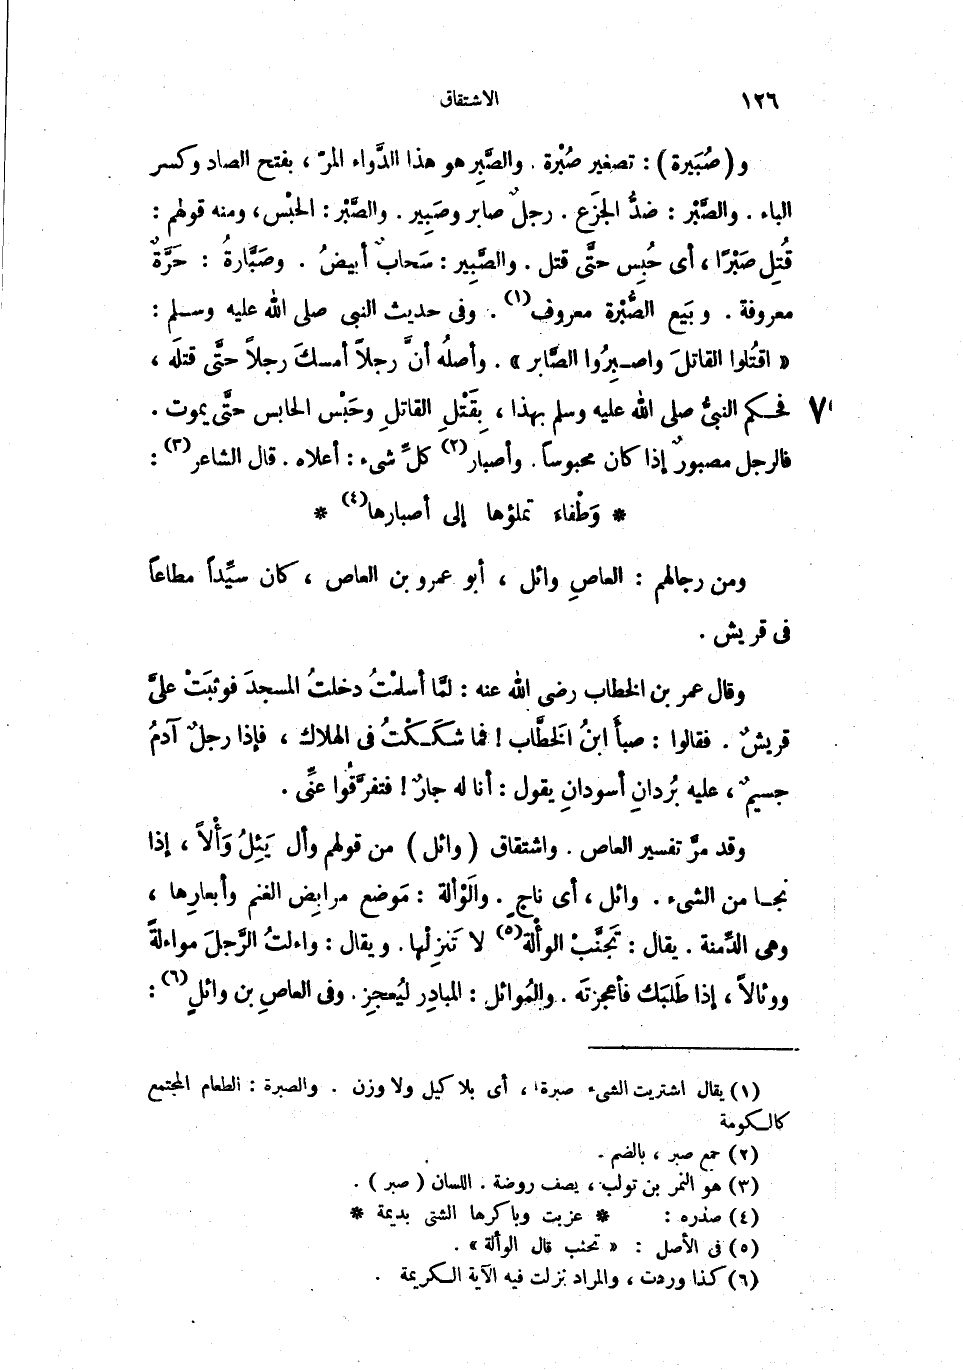 ١٢٦ الاشتقاق
و (صُبَيرة) : تصغير صُبْرة . والصَّبِر هو هذا الدَّواء المرّ ، بفتح الصاد وكسر
الباء . والصَّبْر : ضدُّ الجزَع . رجلٌ صابر وصَبِير . والصَّبْر : الحَبْس ، ومنه قولهم :
قُتِل صَبْرًا ، أى حُبِس حتَّى قتل . والصَّبِير : سَحابٌ أبيضُ . وصَبَّارةُ : حَرَّةٌ
معروفة . وبَيع الصُّبْرة معروف(١) . وفى حديث النبى صلى الله عليه وسلم :
« اقتُلوا القاتلَ واصبِرُوا الصَّابر » . وأصلُه أنَّ رجلاً أمسكَ رجلاً حتَّى قتلَه ،
٧ فحكم النبىُّ صلى الله عليه وسلم بهذا ، بِقَتْلِ القاتلِ وحَبْس الحابس حتَّى يموت .
فالرجل مصبورٌ إذا كان محبوساً . وأصبار(٢) كلِّ شىء : أعلاه . قال الشاعر(٣) :
* وَطْفاء تملؤها إلى أصبارها(٤) *
ومن رجالهم : العاصِ وائل ، أبو عمرو بن العاص ، كان سيِّداً مطاعاً
فى قريش .
وقال عمر بن الخطاب رضى الله عنه : لمَّا أسلمْتُ دخلتُ المسجدَ فوثبَتْ علىَّ
قريشٌ . فقالوا : صبأَ ابنُ الخطَّاب ! فما شكَكْتُ فى الهلاك ، فإذا رجلٌ آدمُ
جسيمٌ ، عليه بُردانِ أسودانِ يقول : أنا له جارٌ ! فتفرَّقُوا عنِّى .
وقد مرَّ تفسير العاص . واشتقاق (وائل) من قولهم وأل يَئِلُ وَأْلاً ، إذا
نجا من الشىء . وائل ، أى ناجٍ . والَوْألة : مَوضع مرابِض الغنم وأبعارِها ،
وهى الدِّمنة . يقال : تَجَنَّبْ الوأْلة(٥) لا تَنزِلْها . ويقال : واءلتُ الرَّجلَ مواءلةً
ووئالاً ، إذا طَلَبَك فأعجزتَه . والمُوائل : المبادِر ليُعجِز . وفى العاصِ بن وائلٍ(٦) :
(١) يقال اشتريت الشىء صبرة ، أى بلا كيل ولا وزن . والصبرة : الطعام المجتمع
كالكومة
(٢) جمع صبر ، بالضم .
(٣) هو النمر بن تولب ، يصف روضة . اللسان (صبر) .
(٤) صدره : * عزبت وباكرها الشتى بديمة *
(٥) فى الأصل : « تحنب قال الوألة » .
(٦) كذا وردت ، والمراد نزلت فيه الآية الكريمة .